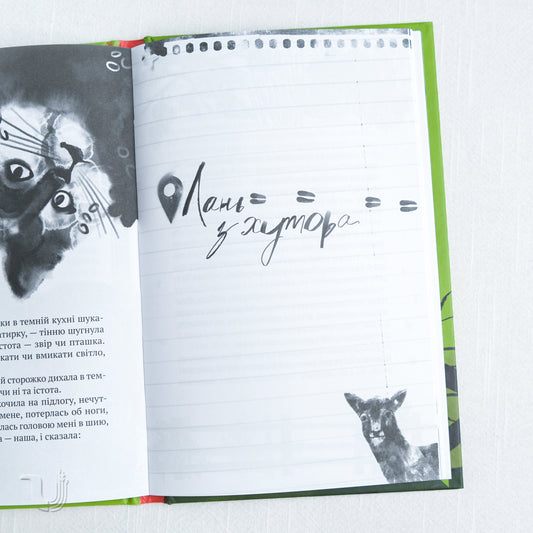 ки в темній кухні шука-
тирку, — тінню шугнула
стота — звір чи пташка.
кати чи вмикати світло,
й сторожко дихала в тем-
чи ні та істота.
очила на підлогу, нечут-
мене, потерлась об ноги,
лась головою мені в шию,
а — наша, і сказала:
Лань
з хутора